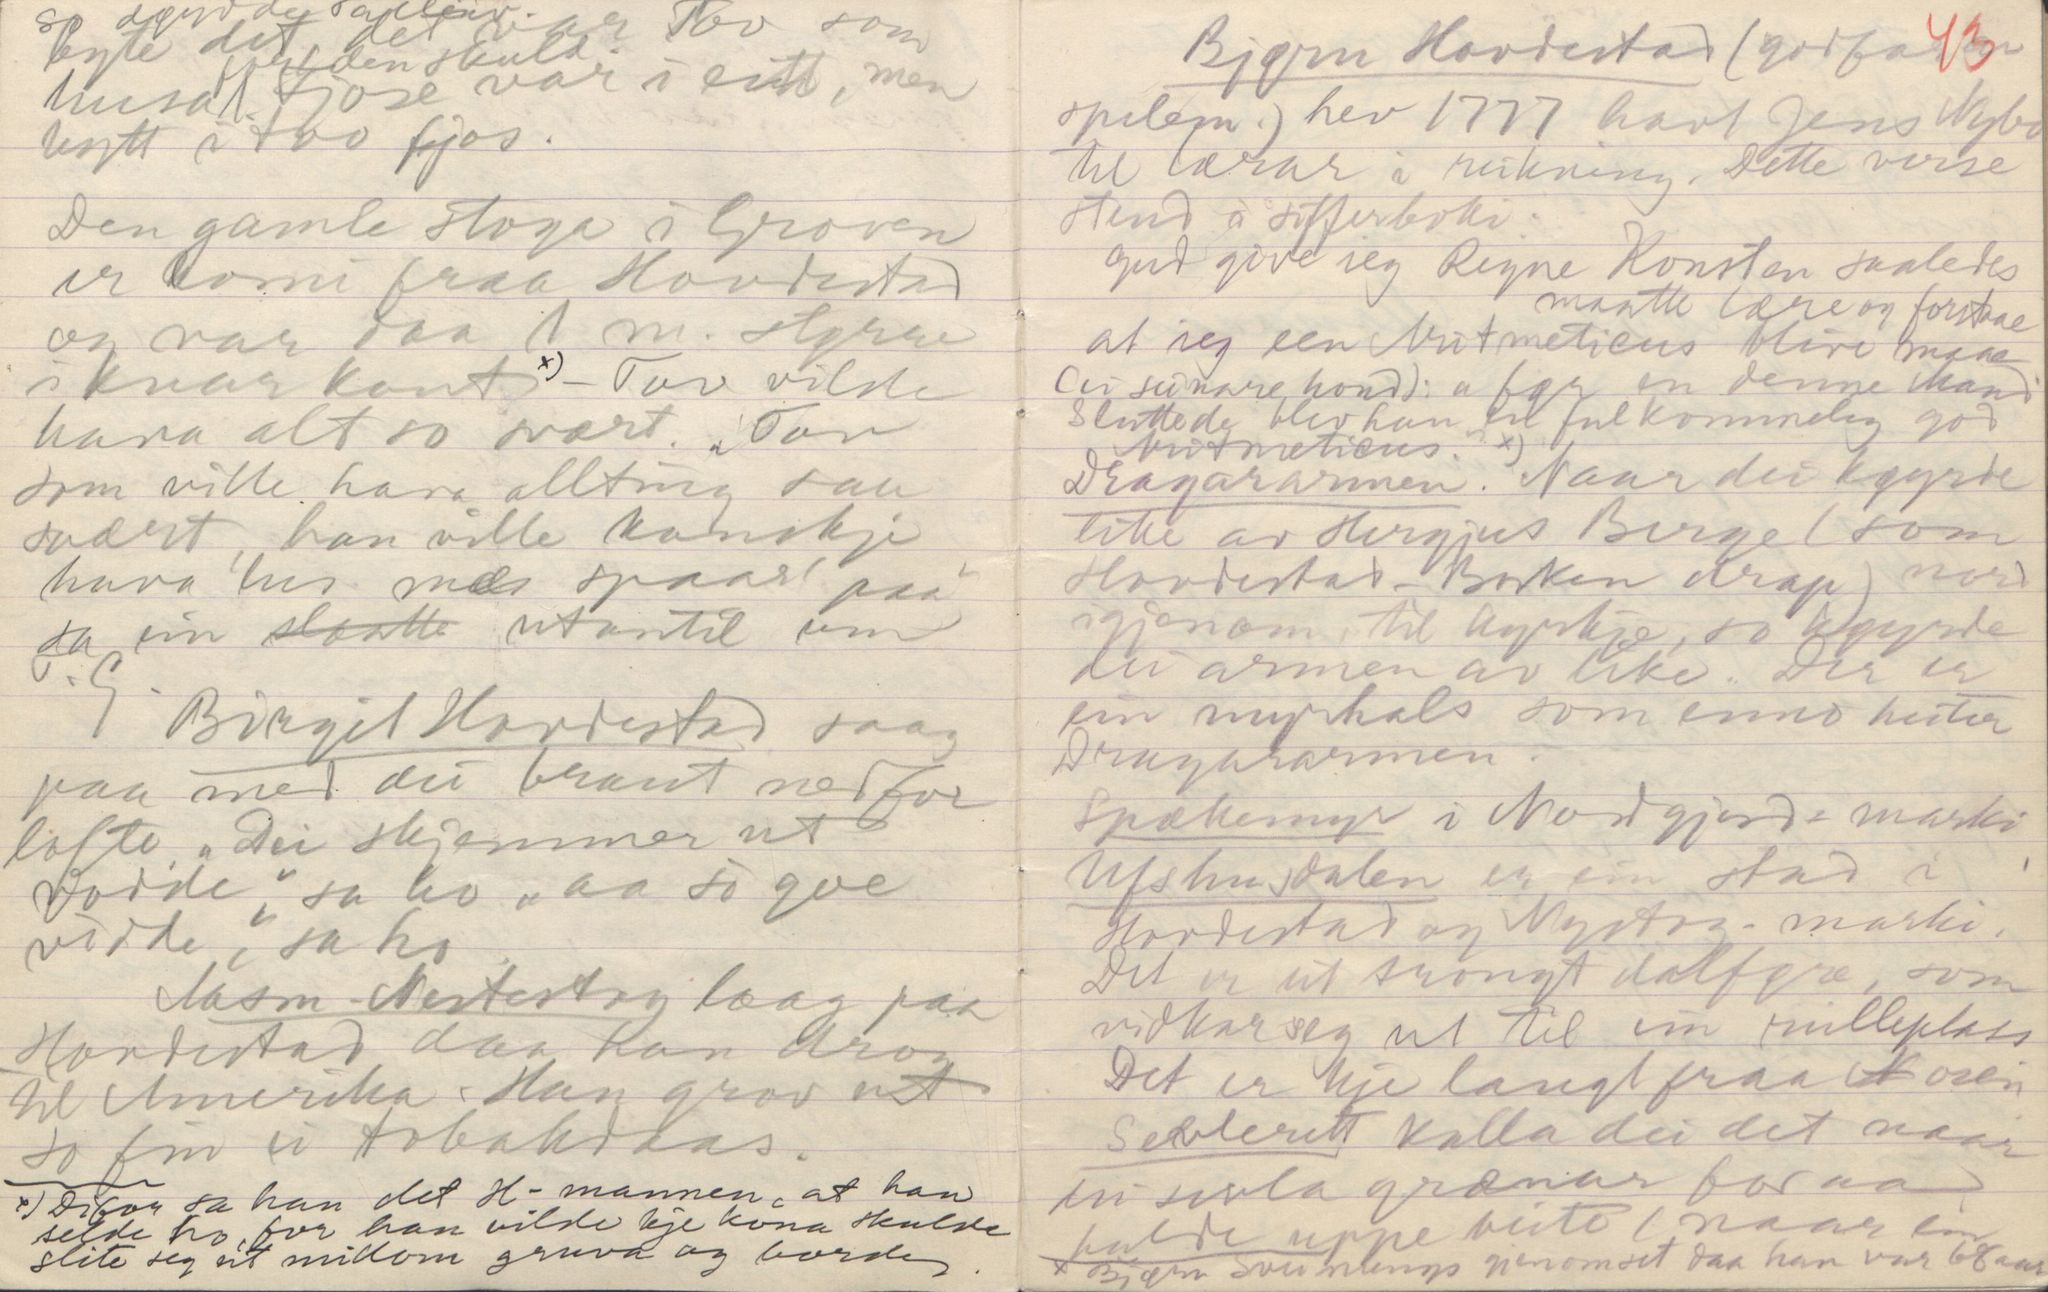 byte det, det var Tov som
den skuld.
husa. Fjose var i eitt, men
bytt i tvo fjos.
Den gamle stoga i Groven
er komi fraa Hovdestad
og var daa 1 m. styrre
i kvar kant x) – Tov vilde
hava alt so svært. "Tov
som ville hava allting saa
svært, han ville kanskje
hava hus med spaar paa"
sa ein slaatte utantil um
T. G.
Birgit Hovdestad saag
paa med dei braut ned for
lofte. "Dei skjemmer ut
vodde," sa ho "aa so goe
vidde," sa ho.
Aasm. Nestestog laag paa
Hovdestad daa han drog
til Amerika. Han grov ut
so fin ei tobakdaas.
x) Difor sa han det H-mannen, at han
selde ho, for han vilde kje kona skulde
slite seg ut millom gruva og borde.
43
Bjørn Hovdestad (godfa
spelem.) hev 1777 havt Jens Nybu
til lærar i reikning. Dette verse
stend i sifferboki:
Gud give ieg Regne Konsten saaledes
maatte lære og forstaae
at ieg een Aritmeticus blive maae
(ei seinare hond): a før en denne Mand
Sluttede blev han en fulkommelig god
Aritmeticus. x)
Dragararmen. Naar dei køyrde
like av Hergjus Berge (som
Hovdestad-Borken drap) nord
igjenom, til kyrkje, so køyrde
dei armen av like. Der er
ein myrhals som enno heiter
Dragararmen.
Spækemyr i Nordgjerd-marki
Ufshusdalen er ein stad i
Hovdestad og Nystog-marki.
Det er eit trongt dalføre, som
vidkar seg ut til ein
Det er kje langt fraa Nosein
kalla dei det naar
ei for aa
halde uppe beite (naar ein
x Bjørn Sveinungs. gjenomset daa han var 68 aar